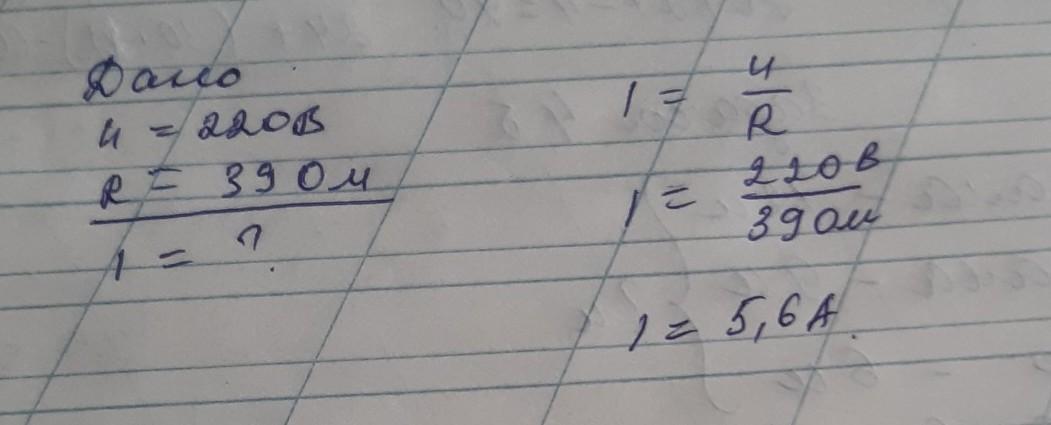 Дано
U = 220В
R = 39 Ом
I = ?
I = U/R
I = 220В/39Ом
I = 5,6А.